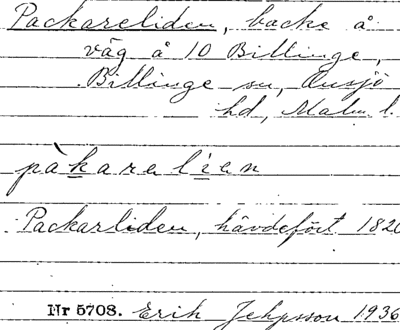 Packareliden, backe å
väg å 10 Billinge,
Billinge sn, Onsjö
hd, Malm. l.
pàkaralían
Packarliden, hävdefört 1820
Nr 5708. Erik Jehpsson 1936